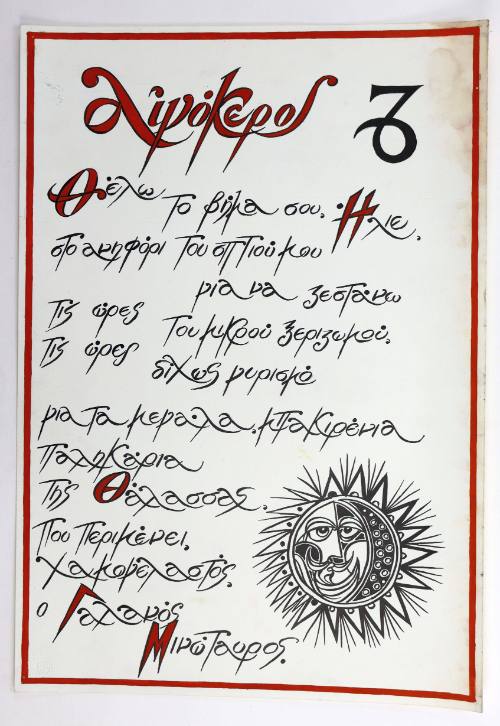 Αιγόκερος
Θέλω το βήμα σου, Ήλιε,
στο ανηφόρι του σπιτιού μου
για να ζεστάνω
τις ώρες του μικρού ξεριζωμού,
τις ώρες δίχως γυρισμό
για τα μεγάλα, μπακιρένια
παληκάρια
της Θάλασσας,
που περιμένει,
χαμογελαστός,
ο Γαλανός
Μινώταυρος.